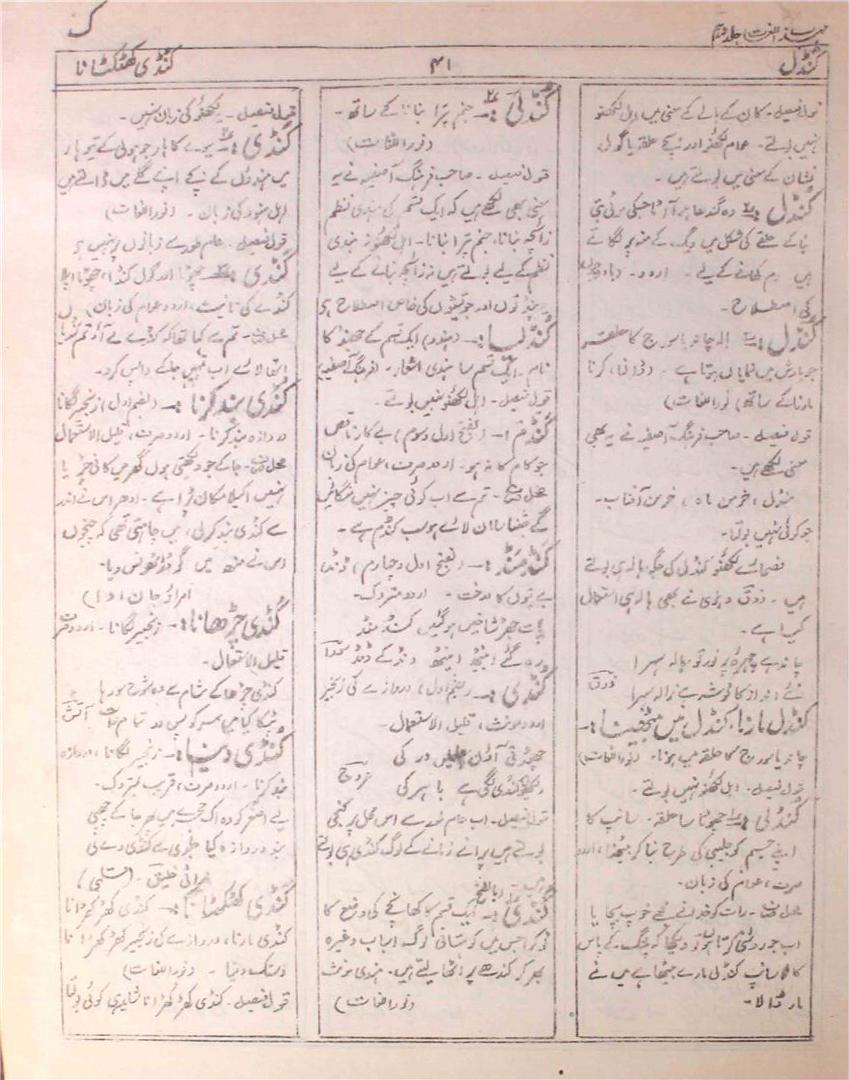 ک
مہذب اللغات جلد دہم
کُنڈل
۴۱
کُنڈی کھٹکھٹانا
قول فیصل۔ کان کے بالے کے معنی میں اہل لکھنؤ
نہیں بولتے۔ عوام لکھنؤ اور نیچے حلقہ یا گولی
نشان کے معنی میں بولتے ہیں۔
کُنڈل :- وہ گندھا ہوا آٹا جسکی موٹی بتی
بنا کے حلقے کی شکل میں دیگ کے منہ پر لگاتے
ہیں دم کھانے کے لیے۔ اردو۔
کی اصطلاح۔
کُنڈل :- ہالہ چاند یا سورج کا حلقہ
جو بارش میں نمایاں ہوتا ہے۔ کرنا
مارنا کے ساتھ) (نور اللغات)
قول فیصل۔ صاحب فرہنگ آصفیہ نے یہ بھی
معنی لکھے ہیں۔
منڈل، خرمن ماہ، خرمن آفتاب۔
جو کوئی نہیں بولتا۔
فصحائے لکھنؤ کنڈل کی جگہ ہالہ ہی بولتے
ہیں۔ ذوقؔ دہلوی نے بھی ہالہ ہی استعمال
کیا ہے۔
چاند ہے چہرۂ پر نور تو ہالہ سہرا
ذوقؔ
کنڈل مارنا، کنڈل میں بیٹھنا :-
چاند یا سورج کا حلقہ میں ہونا۔ (نور اللغات)
قول فیصل۔ اہل لکھنؤ نہیں بولتے۔
کُنڈلی :- چھوٹا سا حلقہ۔ سانپ کا
اپنے جسم کو جلیبی کی طرح بنا کر بیٹھنا، اردو
صرف، عوام کی زبان۔
محل صرف۔ رات کو خدا نے مجھے خوب بچایا
اب جو روشنی کرتا ہوں تو دیکھا کہ پلنگ کے پاس
کالا سانپ کنڈلی مارے بیٹھا ہے میں نے
مار ڈالا۔
کُنڈلی :- جنم پترا بنانا کے ساتھ۔
(نور اللغات)
قول فیصل۔ صاحب فرہنگ آصفیہ نے یہ
معنی بھی لکھے ہیں کہ ایک قسم کی ہندی نظم
زائچہ بنانا، جنم پترا بنانا۔ اہل لکھنؤ نہ ہندی
نظم کے لیے بولتے ہیں نہ زائچہ بنانے کے لیے
یہ پنڈتوں اور جوتشیوں کی خاص اصطلاح ہے
کُنڈلیا :- (ہندو) ایک قسم کے چھند کا
نام۔ ایک قسم کا ہندی اشعار۔ (فرہنگ آصفیہ)
قول فیصل۔ اہل لکھنؤ نہیں بولتے۔
کَنڈَم :- (بفتح اول و سوم) بے کار ناقص
جو کام کا نہ ہو۔ اردو صرف، عوام کی زبان
محل صرف۔ تم سے اب کوئی چیز نہیں منگائیں
گے جتنا سامان لائے ہو سب کنڈم ہے۔
کَنڈ مَنڈ :- (بفتح اول و چہارم) ٹنڈ،
بے پتوں کا درخت۔ اردو متروک۔
پات جھڑ شاخیں ہو گئیں کنڈ منڈ
رہ گئے اینٹھ اینٹھ ونڈ کے ونڈ
کُنڈی :- (بضم اول) دروازے کی زنجیر
اردو مونث، قلیل الاستعمال۔
دیکھو کنڈی لگی ہے باہر کی
قول فیصل۔ اب عام طور سے اس محل پر کنجی
بولتے ہیں پرانے زمانے کے لوگ کنڈی ہی بولتے
ہیں۔
کَنڈی :- (بالفتح) ایک قسم کا کھانچے کی وضع کا
ٹوکرا جس میں کوہستانی لوگ اسباب وغیرہ
بھر کر کندھے پر اٹھا لیتے ہیں۔ ہندی مونث
(نور اللغات)
قول فیصل۔ لکھنؤ کی زبان نہیں۔
کُنڈی :- میوے کا ہار جو ہولی کے تیوہار
میں ہندؤں کے بچے اپنے گلے میں ڈالتے ہیں
اہل ہنود کی زبان۔ (نور اللغات)
قول فیصل۔ عام طور سے زبانوں پر نہیں ہے
کَنڈی :- چھوٹا اور گول کنڈا، چھوٹا اپلا
کنڈے کی تانیث، اردو عوام کی زبان۔
محل صرف۔ تم سے کہا تھا کہ کنڈے لے آؤ تم کنڈیاں
اٹھا لائے اب انہیں جا کے واپس کر دو۔
کُنڈی بند کرنا :- (بضم اول) زنجیر لگانا
دروازہ بند کرنا۔ اردو صرف، قلیل الاستعمال
محل صرف۔ جا کے جو دیکھتی ہوں گھر میں کانی چڑیا
نہیں اکیلا مکان پڑا ہے۔ ادھر اس نے اندر
سے کنڈی بند کر لی، میں چاہتی تھی کہ چیخوں
اس نے منھ میں گودڑ ٹھونس دیا۔
(امراؤ جان ادا)
کُنڈی چڑھانا :- زنجیر لگانا۔ اردو صرف
قلیل الاستعمال۔
کنڈی چڑھا کے شام سے وہ شوخ سو رہا
پٹکا کیا میں سر کو پس در تمام رات
آتشؔ
کُنڈی دینا :- زنجیر لگانا، دروازہ
بند کرنا۔ اردو صرف، قریب بہ متروک۔
کُنڈی کھٹکھٹانا :- کنڈی کھڑکھڑانا
کنڈی مارنا، دروازے کی زنجیر کھڑکھڑانا
دستک دینا۔ (نور اللغات)
قول فیصل۔ کنڈی کھڑکھڑانا شاید ہی کوئی بولتا